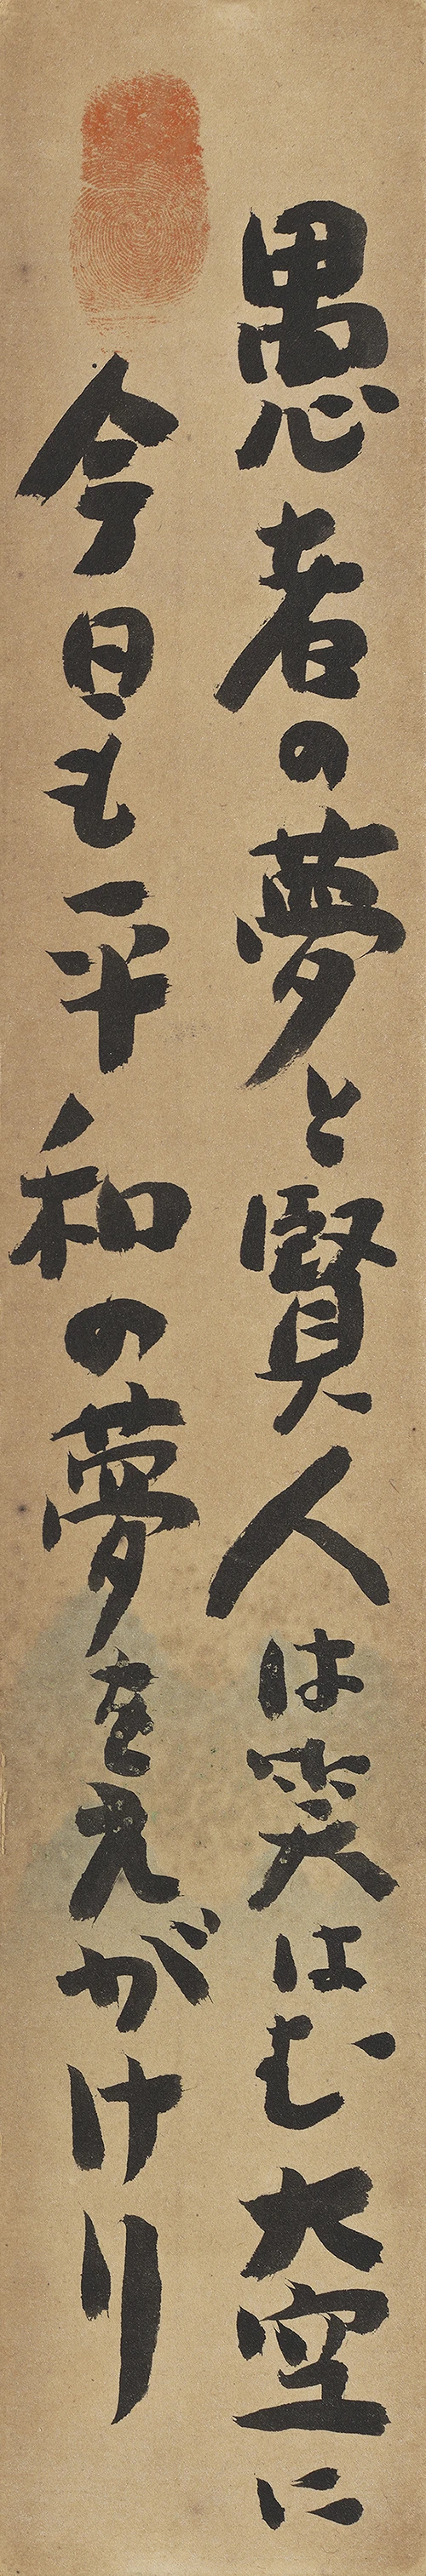 愚者の夢と賢人は笑はむ大空に
今日も平和の夢をえがけり